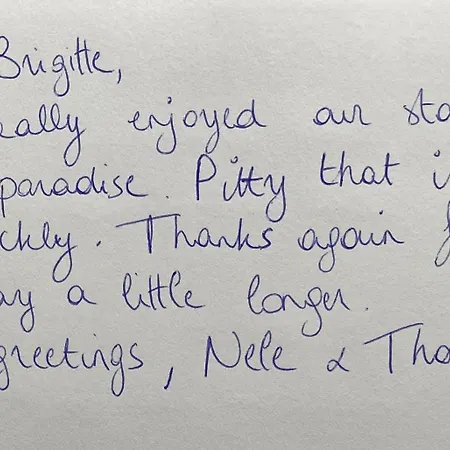 Brigitte,
eally enjoyed our sta
paradise. Pitty that i
ckly. Thanks again f
ay a little longer.
greetings, Nele & Tho